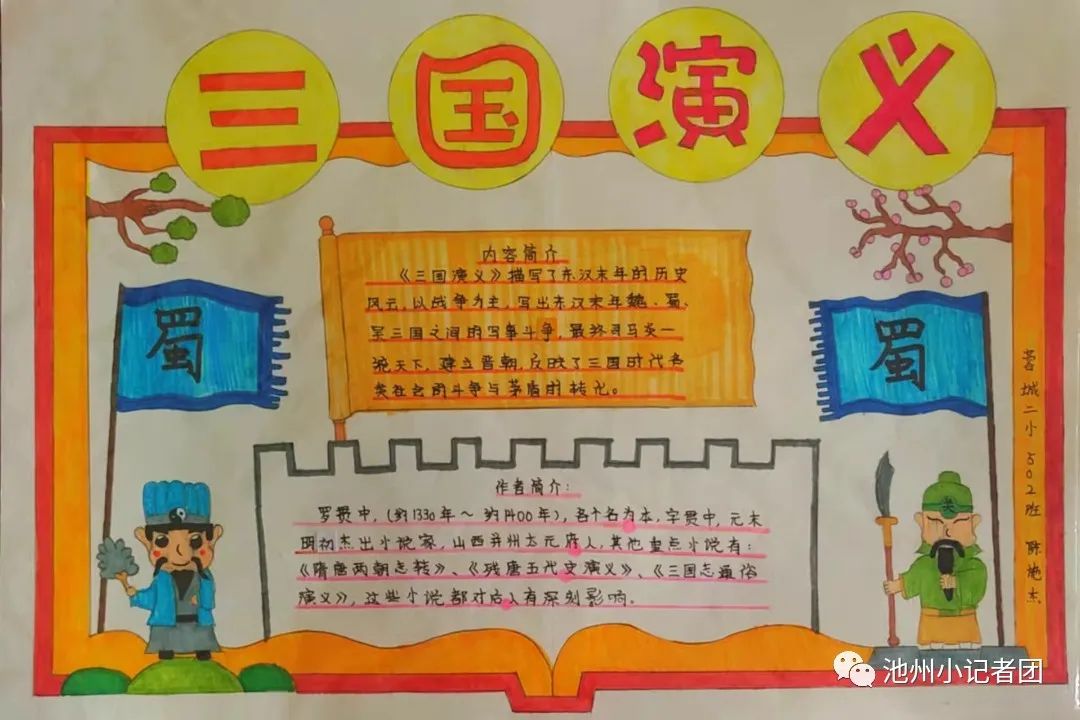 三国演义
内容简介
《三国演义》描写了东汉末年的历史
风云,以战争为主,写出东汉末年魏、蜀、
吴三国之间的军事斗争,最终司马炎一
统天下,建立晋朝,反映了三国时代各
类社会的斗争与茅盾的转化。
蜀
蜀
作者简介:
罗贯中,(约1330年~约1400年),名个名为本,字贯中,元末
明初杰出小说家,山西并州太元府人,其他重点小说有:
《隋唐两朝志转》、《残唐五代史演义》、《三国志通俗
演义》,这些小说都对后人有深刻影响。
蓉城二小 502班 陈 杰
池州小记者团